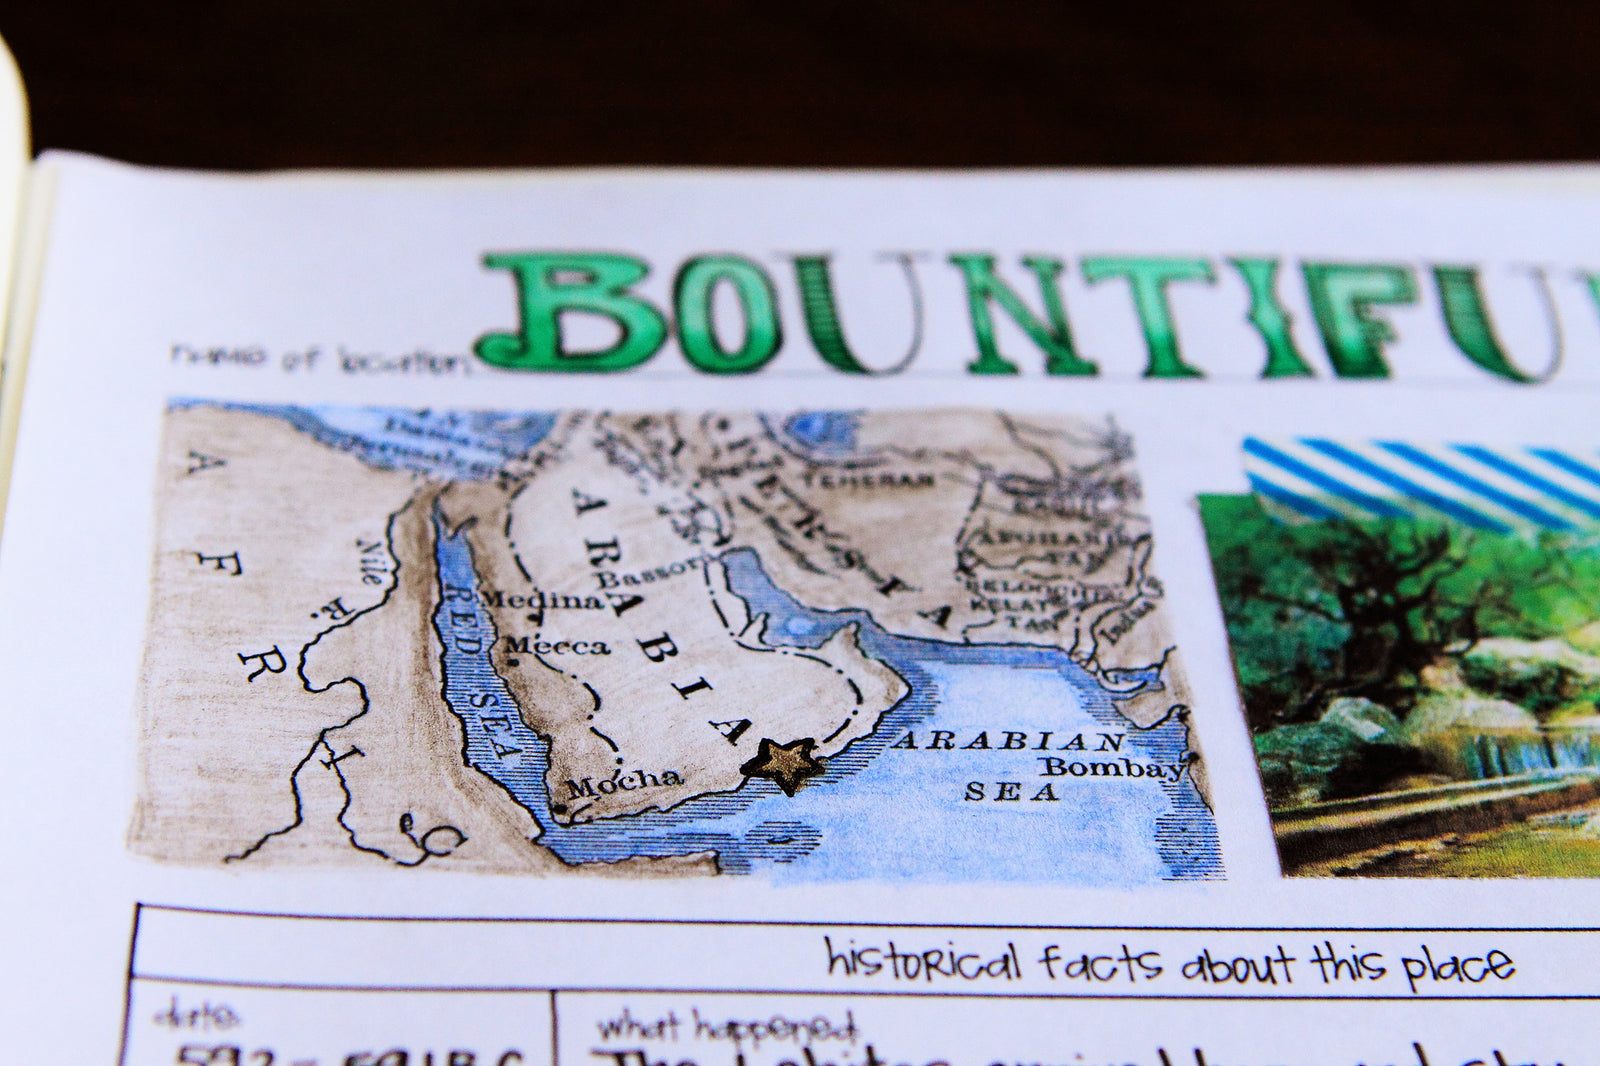 BOUNTIFU
name of location:
AFRI
C
Nile
R.
RED SEA
ARABIA
Medina
Mecca
Mocha
Bassora
PERSIA
TEHERAN
KELAT
Indus
ARABIAN
SEA
Bombay
historical facts about this place
date:
what happened
592 - 591 B.C.
The Lehites